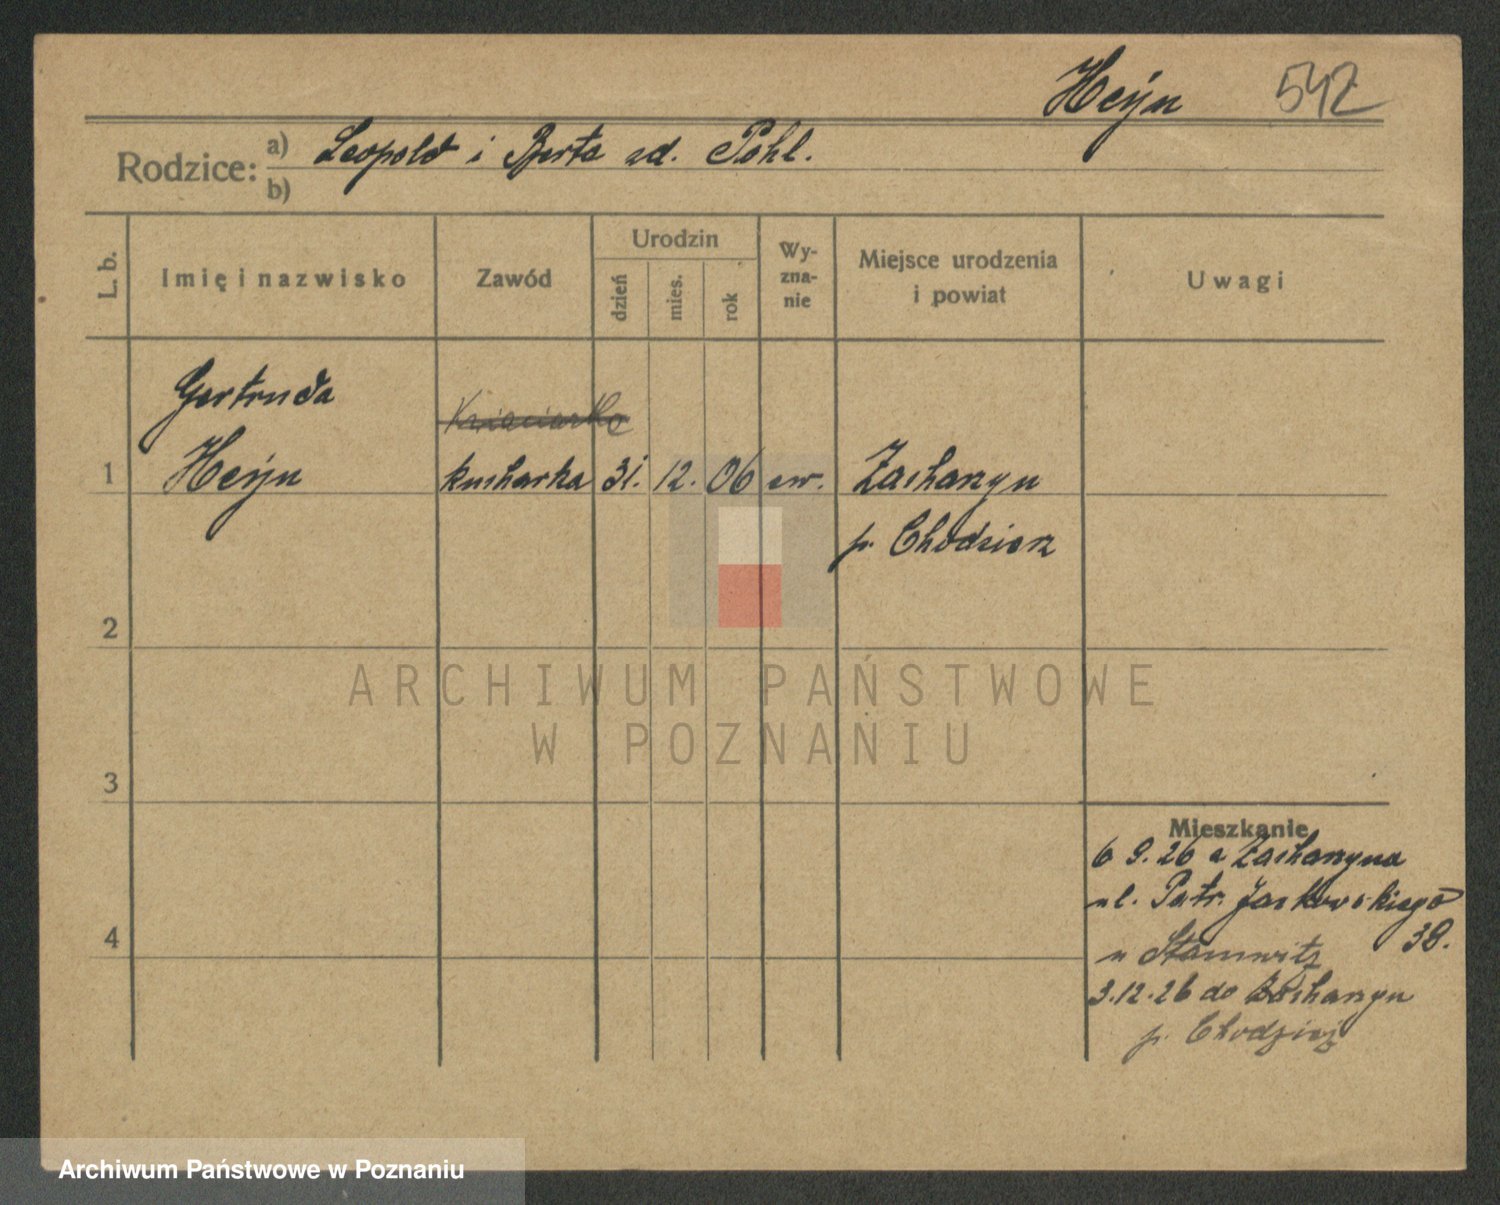 Heyn 542
Rodzice: a) Leopold i Berta zd. Pohl.
b)
L. b.
Imię i nazwisko
Zawód
Urodzin
dzień
mies.
rok
Wy-
zna-
nie
Miejsce urodzenia
i powiat
Uwagi
Gertruda
1 Heyn kucharka 31. 12. 06 ew. Zacharzyn
p. Chodzież
2
ARCHIWUM PAŃSTWOWE
W POZNANIU
3
Mieszkanie
6 9. 26 z Zacharzyna
ul. Patr. Jackowskiego
38.
4
u
3.12.26 do Zacharzyn
p. Chodzież
Archiwum Państwowe w Poznaniu